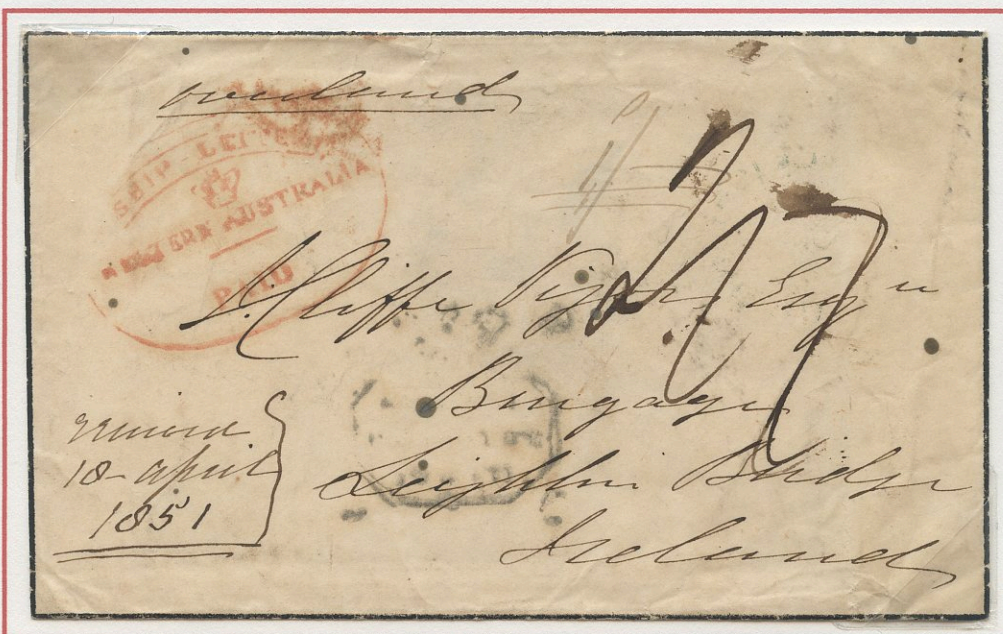 overland
SHIP-LETTER
WESTERN AUSTRALIA
PAID
Cliffe Vigors Esqre
Burgage
Leighlin Bridge
Ireland
received
18 April
1851